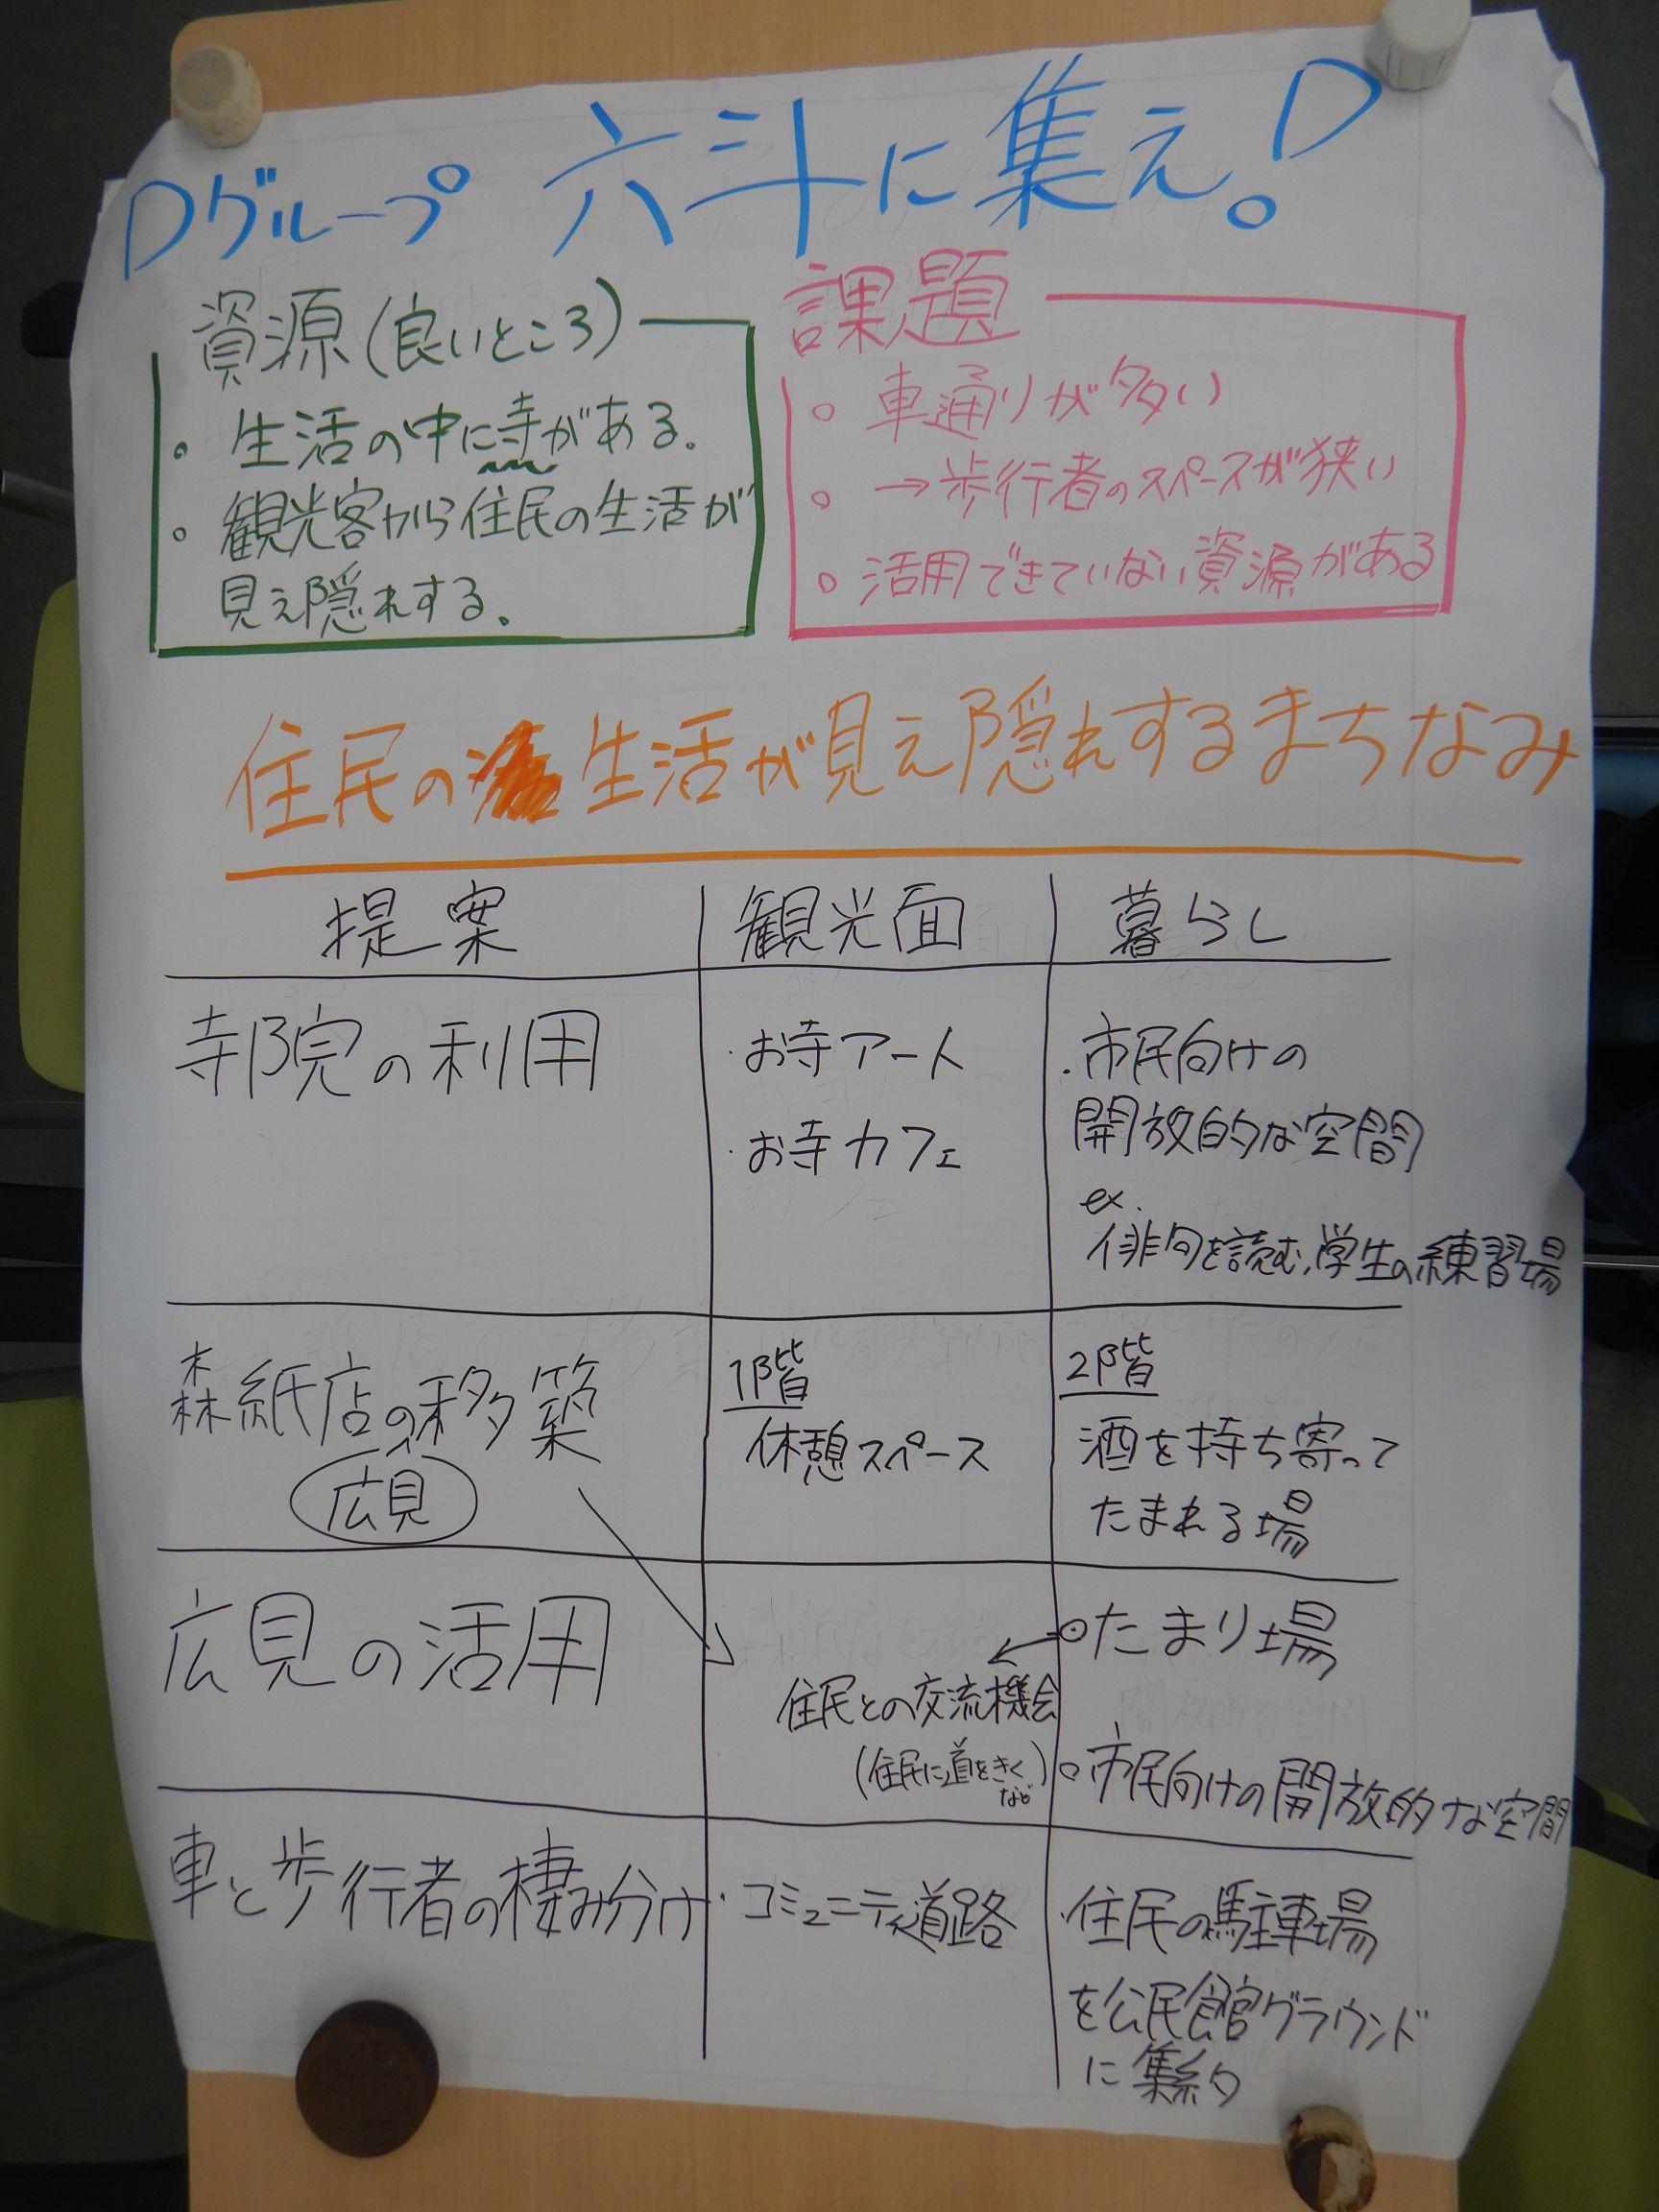 Dグループ 六斗に集え。D
資源(良いところ)
・生活の中に寺がある。
・観光客から住民の生活が
見え隠れする。
課題
○ 車通りが多い
○ →歩行者のスペースが狭い
○ 活用できていない資源がある
住民の生活が見え隠れするまちなみ
提案 観光面 暮らし
寺院の利用
・お寺アート
・お寺カフェ
・市民向けの
開放的な空間
ex.
俳句を読む,学生の練習場
森紙店の移築
広見
1階
休憩スペース
2階
酒を持ち寄って
たまれる場
広見の活用
住民との交流機会
(住民に道をきく
など)
○たまり場
○市民向けの開放的な空間
車と歩行者の棲み分け
・コミュニティ道路
・住民の駐車場
を公民館グラウンド
に集約